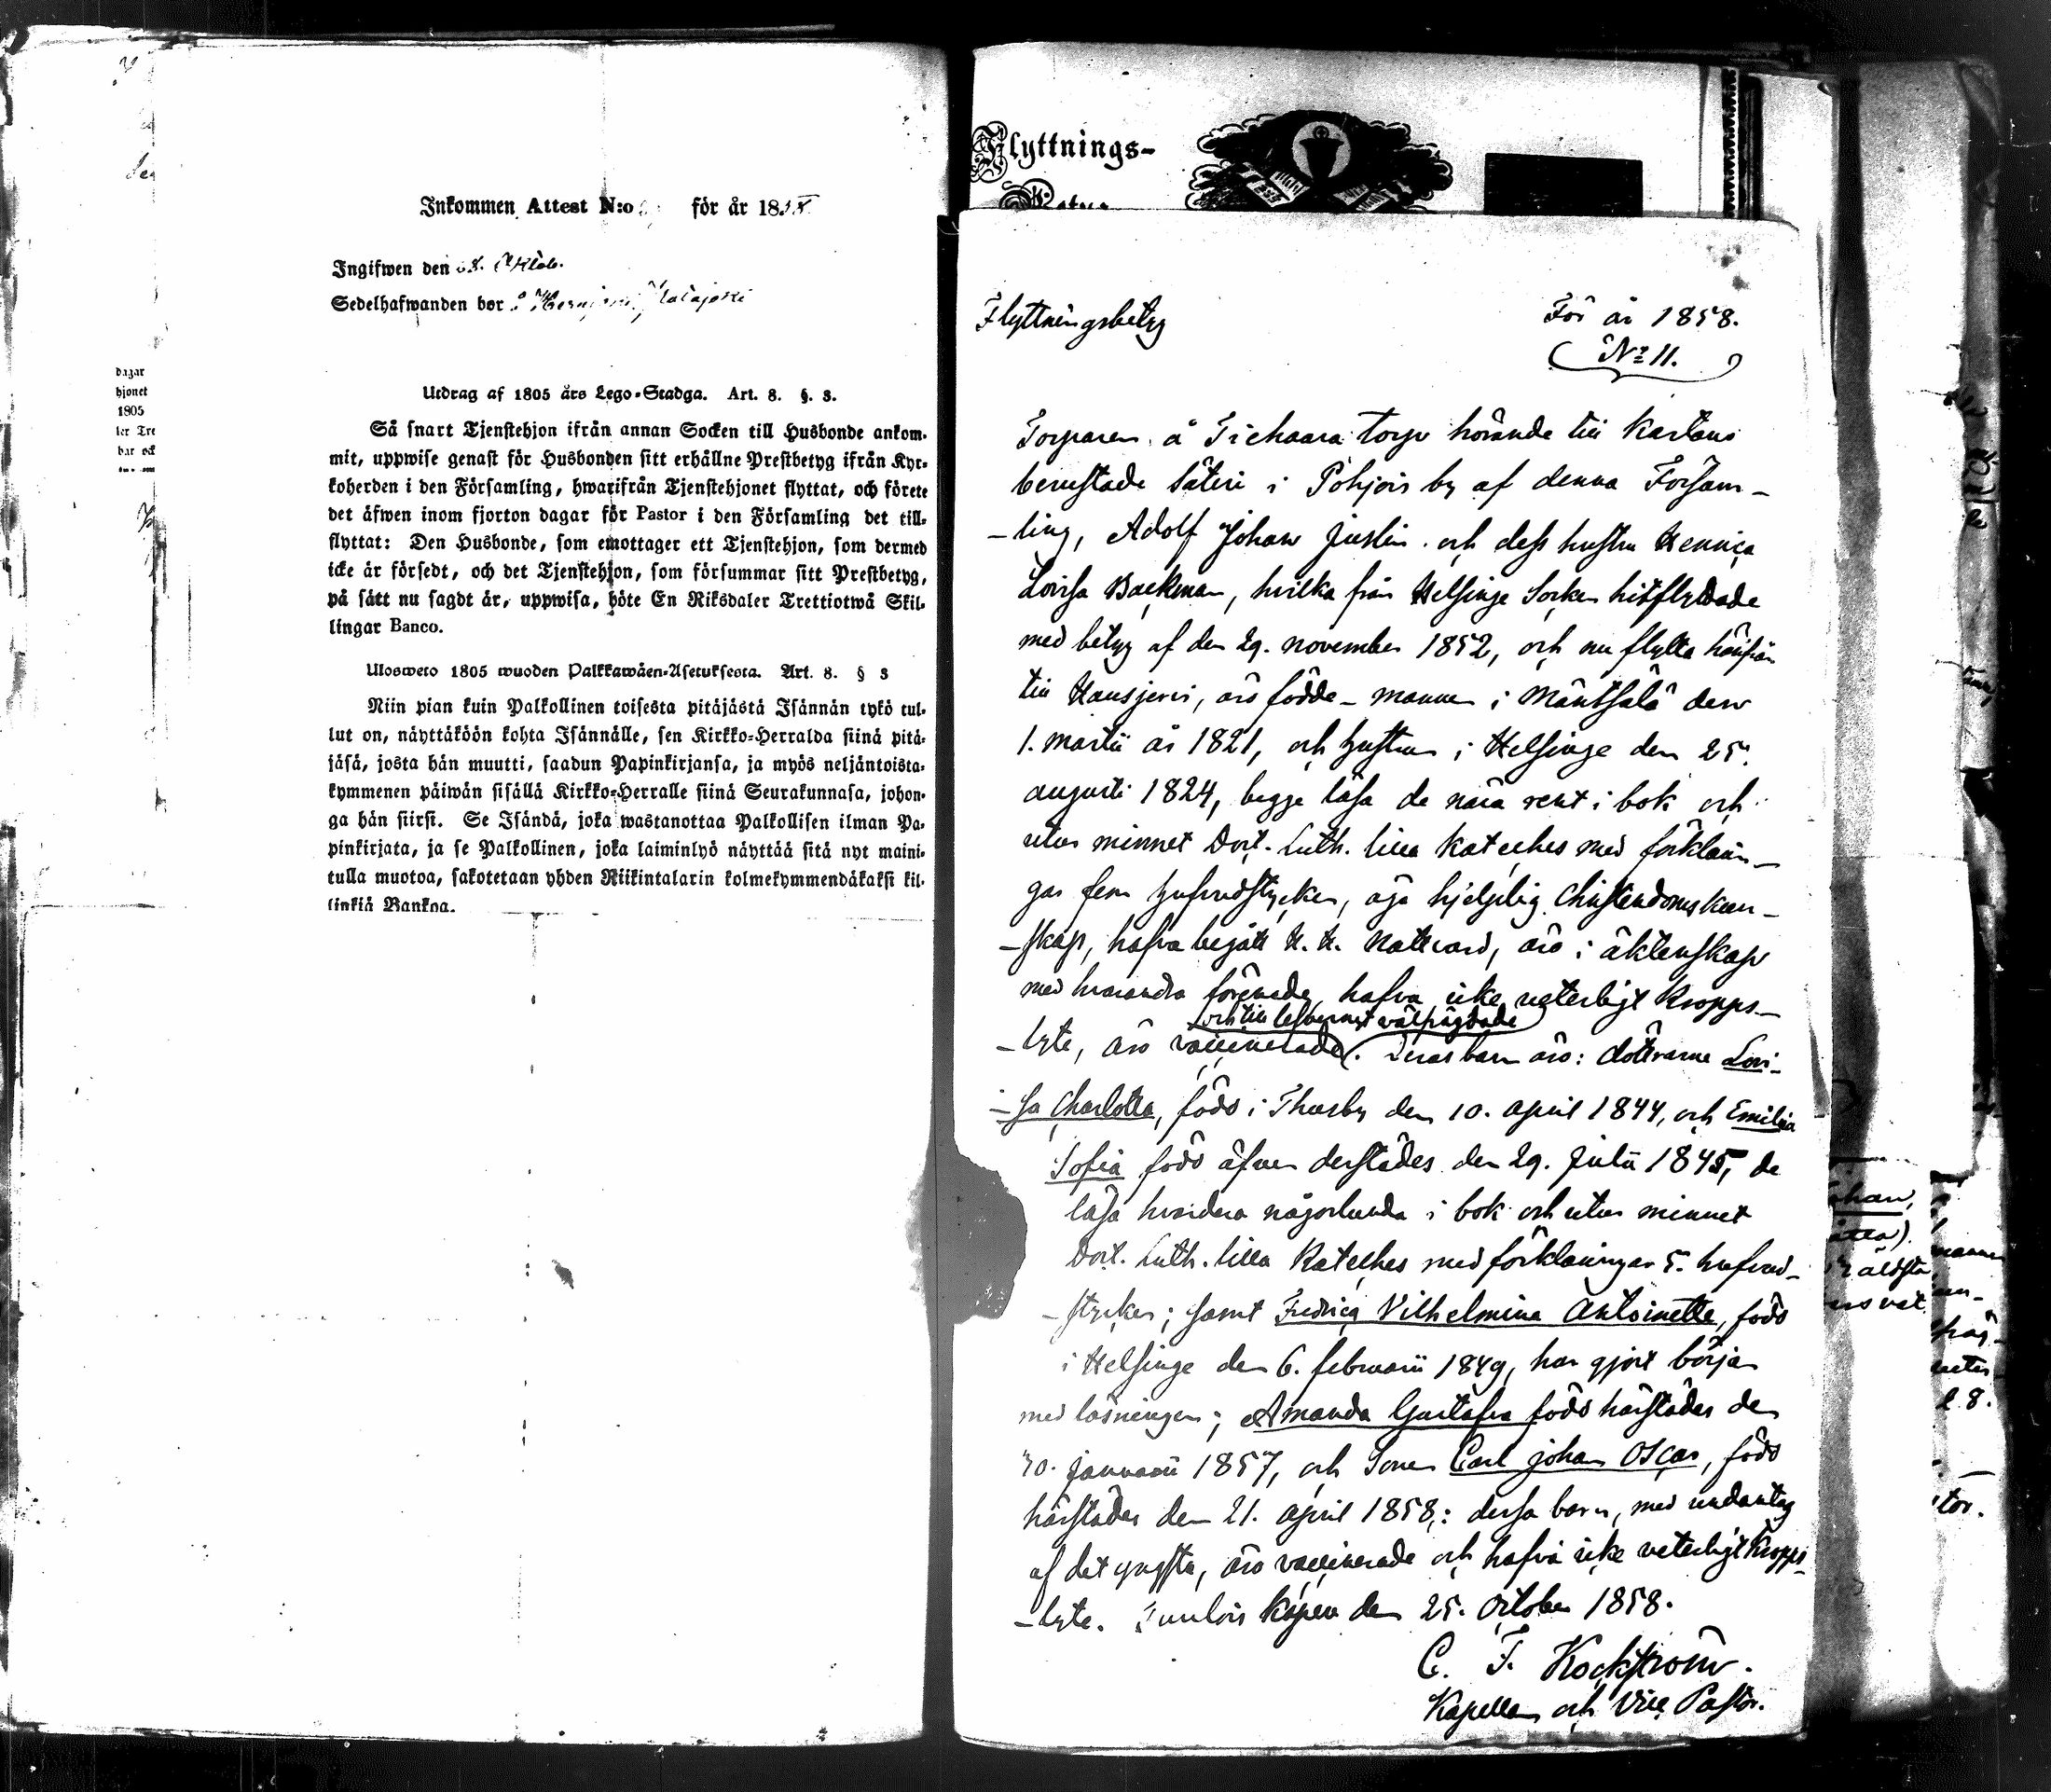 Inkommen Attest N:o för år 1858.
Ingifwen den 28. Oktob.
Sedelhafwanden bor i
Utdrag af 1805 års Lego-Stadga. Art. 8. §. 3.
Så snart Tjenstehjon ifrån annan Socken till Husbonde ankom-
mit, uppwise genast för Husbonden sitt erhållne Prestbetyg ifrån Kyr-
koherden i den Församling, hwarifrån Tjenstehjonet flyttat, och förete
det äfwen inom fjorton dagar för Pastor i den Församling det till-
flyttat: Den Husbonde, som emottager ett Tjenstehjon, som dermed
icke är försedt, och det Tjenstehjon, som försummar sitt Prestbetyg,
på sätt nu sagdt är, uppwisa, böte En Riksdaler Trettiotwå Skil-
lingar Banco.
Ulosweto 1805 wuoden Palkkawäen-Asetuksesta. Art. 8. § 3
Niin pian kuin Palkollinen toisesta pitäjästä Isännän tykö tul-
lut on, näyttäköön kohta Isännälle, sen Kirkko-Herralda siinä pitä-
jäsä, josta hän muutti, saadun Papinkirjansa, ja myös neljäntoista-
kymmenen päiwän sisällä Kirkko-Herralle siinä Seurakunnasa, johon-
ga hän siirsi. Se Isändä, joka wastanottaa Palkollisen ilman Pa-
pinkirjata, ja se Palkollinen, joka laiminlyö näyttää sitä nyt maini-
tulla muotoa, sakotetaan yhden Riikintalarin kolmekymmendäkaksi kil-
linkiä Bankoa.
dagar
hjonet
1805
ler Tre
bar ock
Flyttnings-
Flyttningsbetyg För år 1858.
No 11.
Torparen å Trehaara torp hörande till Kartano
benestade Säteri i Pohjois by af denna Försam-
-ling, Adolf Johan Juslin och dess hustru Henrica
Lovisa Backman, hvilka från Helsinge Socken hitflyttade
med betyg af den 29. november 1852, och nu flytta härifrån
till Hausjervi, äro födde - mannen i Mäntsälä den
1. martii år 1821, och hustrun i Helsinge den 25.
augusti 1824, begge läsa de nära rent i bok och
utur minnet Doct. Luth. lilla Kateches med förklarin-
gar fem hufvudstycken, äga hjelplig Christendoms kun-
-skap, hafva begått H. H. Nattvard, äro i äktenskap
med hvarandra förenade, hafva icke veterligt kropps-
och till lefvernet välfrägdade
-lyte, äro vaccinerade. Deras barn äro: döttrarne Lovi-
-sa Charlotta, född i Thusby den 10. april 1844, och Emilia
Sofia född äfven derstädes den 29. Julii 1845, de
läsa hvardera någorlunda i bok och utur minnet
Doct. Luth. lilla Kateches med förklaringar 5. hufvud-
-stycken; samt Fredrica Vilhelmina Antoinette, född
i Helsinge den 6. februarii 1849, har gjort början
med läsningen; Amanda Gustafva född härstädes den
30. januarii 1857, och Sonen Carl Johan Oscar, född
härstädes den 21. april 1858,: dessa barn, med undantag
af det yngsta, äro vaccinerade och hafva icke veterligt kropps-
-lyte. Tuulois Kapell den 25. October 1858.
C. F. Kockström.
Kapellan och Vice Pastor.